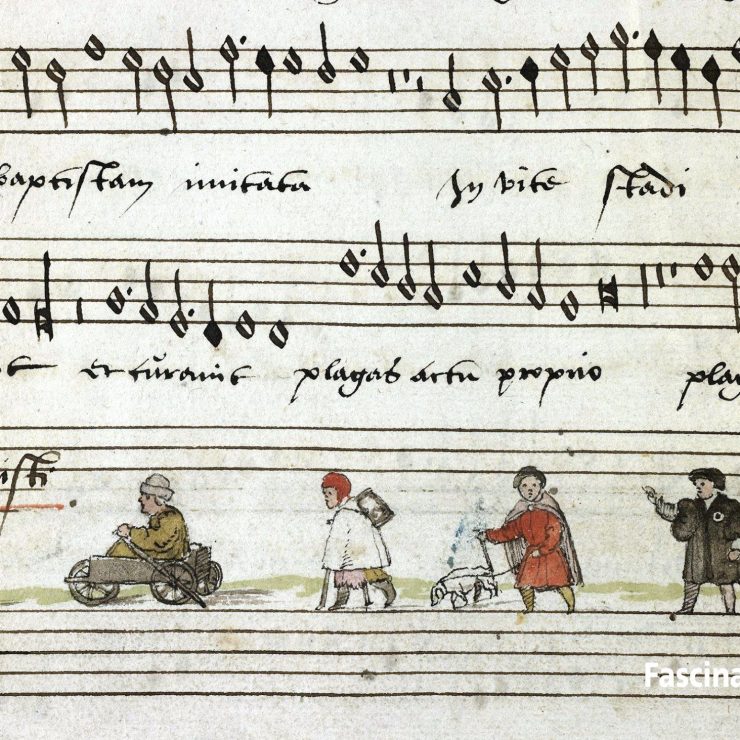 baptistam imitata In vite stadi
et curavit plagas actu proprio plag
isti
Fascina